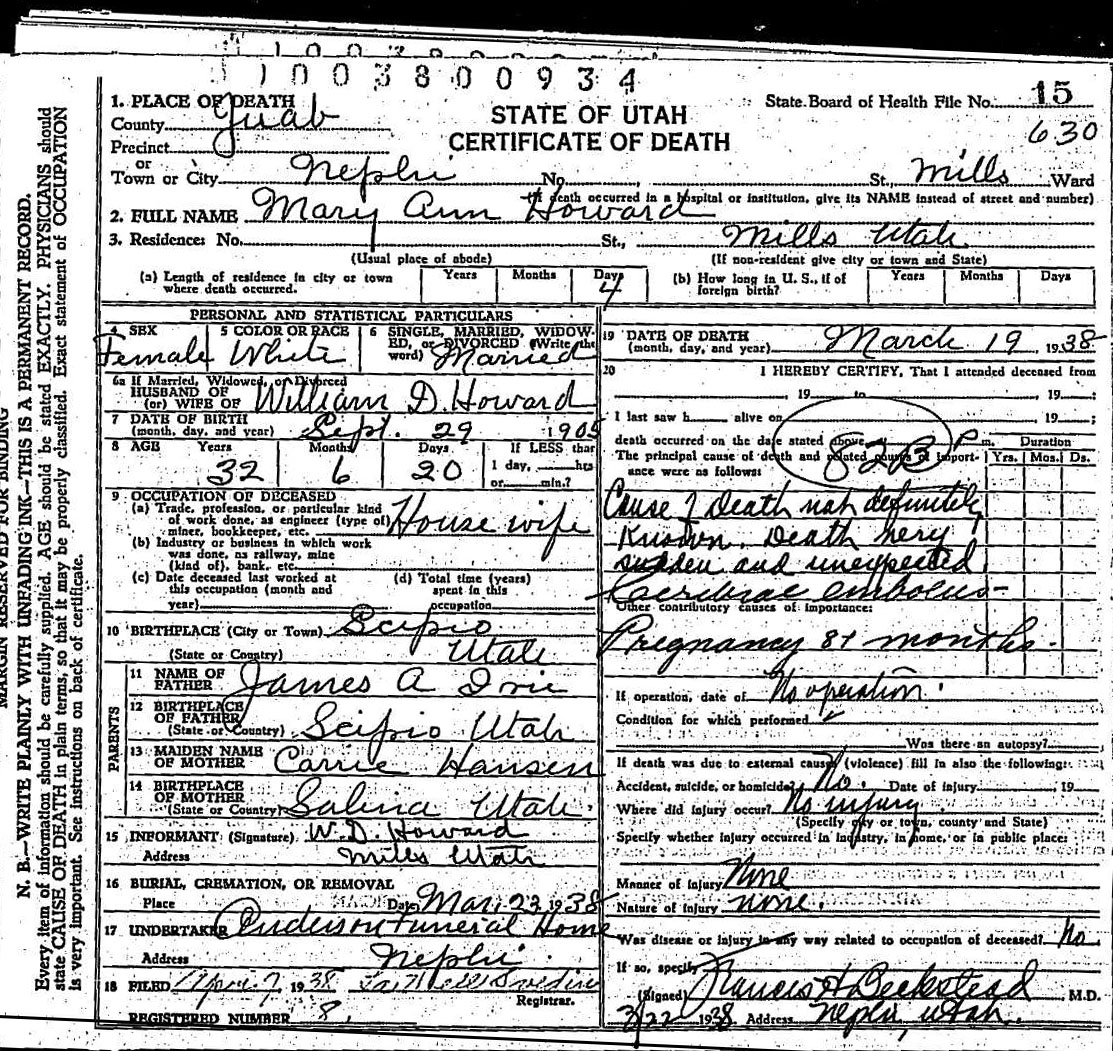 1003800934
1. PLACE OF DEATH
County Juab
Precinct
or
Town or City Nephi No. St., Mills Ward
STATE OF UTAH
CERTIFICATE OF DEATH
State Board of Health File No. 15
630
(If death occurred in a hospital or institution, give its NAME instead of street and number)
2. FULL NAME Mary Ann Howard
3. Residence: No. St., Mills Utah
(Usual place of abode) (If non-resident give city or town and State)
(a) Length of residence in city or town where death occurred. Years Months Days 4
(b) How long in U. S., if of foreign birth? Years Months Days
PERSONAL AND STATISTICAL PARTICULARS
4 SEX Female
5 COLOR OR RACE White
6 SINGLE, MARRIED, WIDOWED, or DIVORCED (Write the word) Married
6a If Married, Widowed, or Divorced
HUSBAND OF
(or) WIFE OF William D. Howard
7 DATE OF BIRTH
(month, day, and year) Sept. 29 1905
8 AGE Years 32 Months 6 Days 20 If LESS than 1 day, hrs or min.?
9 OCCUPATION OF DECEASED
(a) Trade, profession, or particular kind of work done, as engineer (type of) miner, bookkeeper, etc. House wife
(b) Industry or business in which work was done, as railway, mine (kind of), bank, etc.
(c) Date deceased last worked at this occupation (month and year)
(d) Total time (years) spent in this occupation
10 BIRTHPLACE (City or Town) Scipio
(State or Country) Utah
PARENTS
11 NAME OF FATHER James A Ivie
12 BIRTHPLACE OF FATHER
(State or Country) Scipio Utah
13 MAIDEN NAME OF MOTHER Carrie Hansen
14 BIRTHPLACE OF MOTHER
(State or Country) Salina Utah
15 INFORMANT (Signature) W. D. Howard
Address Mills Utah
16 BURIAL, CREMATION, OR REMOVAL
Place Date Mar. 23 1938
17 UNDERTAKER Anderson Funeral Home
Address Nephi
18 FILED 7 1938
Registrar.
REGISTERED NUMBER 8.
19 DATE OF DEATH
(month, day, and year) March 19 1938
20 I HEREBY CERTIFY, That I attended deceased from
19 to 19 ;
I last saw h alive on 19 ;
death occurred on the date stated above, P m. Duration
82B
The principal cause of death and related causes of importance were as follows: Yrs. Mos. Ds.
Cause of Death not definitely
Known. Death very
sudden and unexpected
Cerebral embolus
Other contributory causes of importance:
Pregnancy 8+ months
If operation, date of No operation.
Condition for which performed
Was there an autopsy?
If death was due to external causes (violence) fill in also the following:
Accident, suicide, or homicide? No. Date of injury 19
Where did injury occur? No injury
(Specify city or town, county and State)
Specify whether injury occurred in industry, in home, or in public place:
Manner of injury None
Nature of injury none.
Was disease or injury in any way related to occupation of deceased? No
If so, specify
(Signed) Francis H Beckstead M.D.
3/22 1938 Address Nephi, Utah.
MARGIN RESERVED FOR BINDING
N. B.—WRITE PLAINLY WITH UNFADING INK—THIS IS A PERMANENT RECORD.
Every item of information should be carefully supplied. AGE should be stated EXACTLY. PHYSICIANS should
state CAUSE OF DEATH in plain terms, so that it may be properly classified. Exact statement of OCCUPATION
is very important. See instructions on back of certificate.